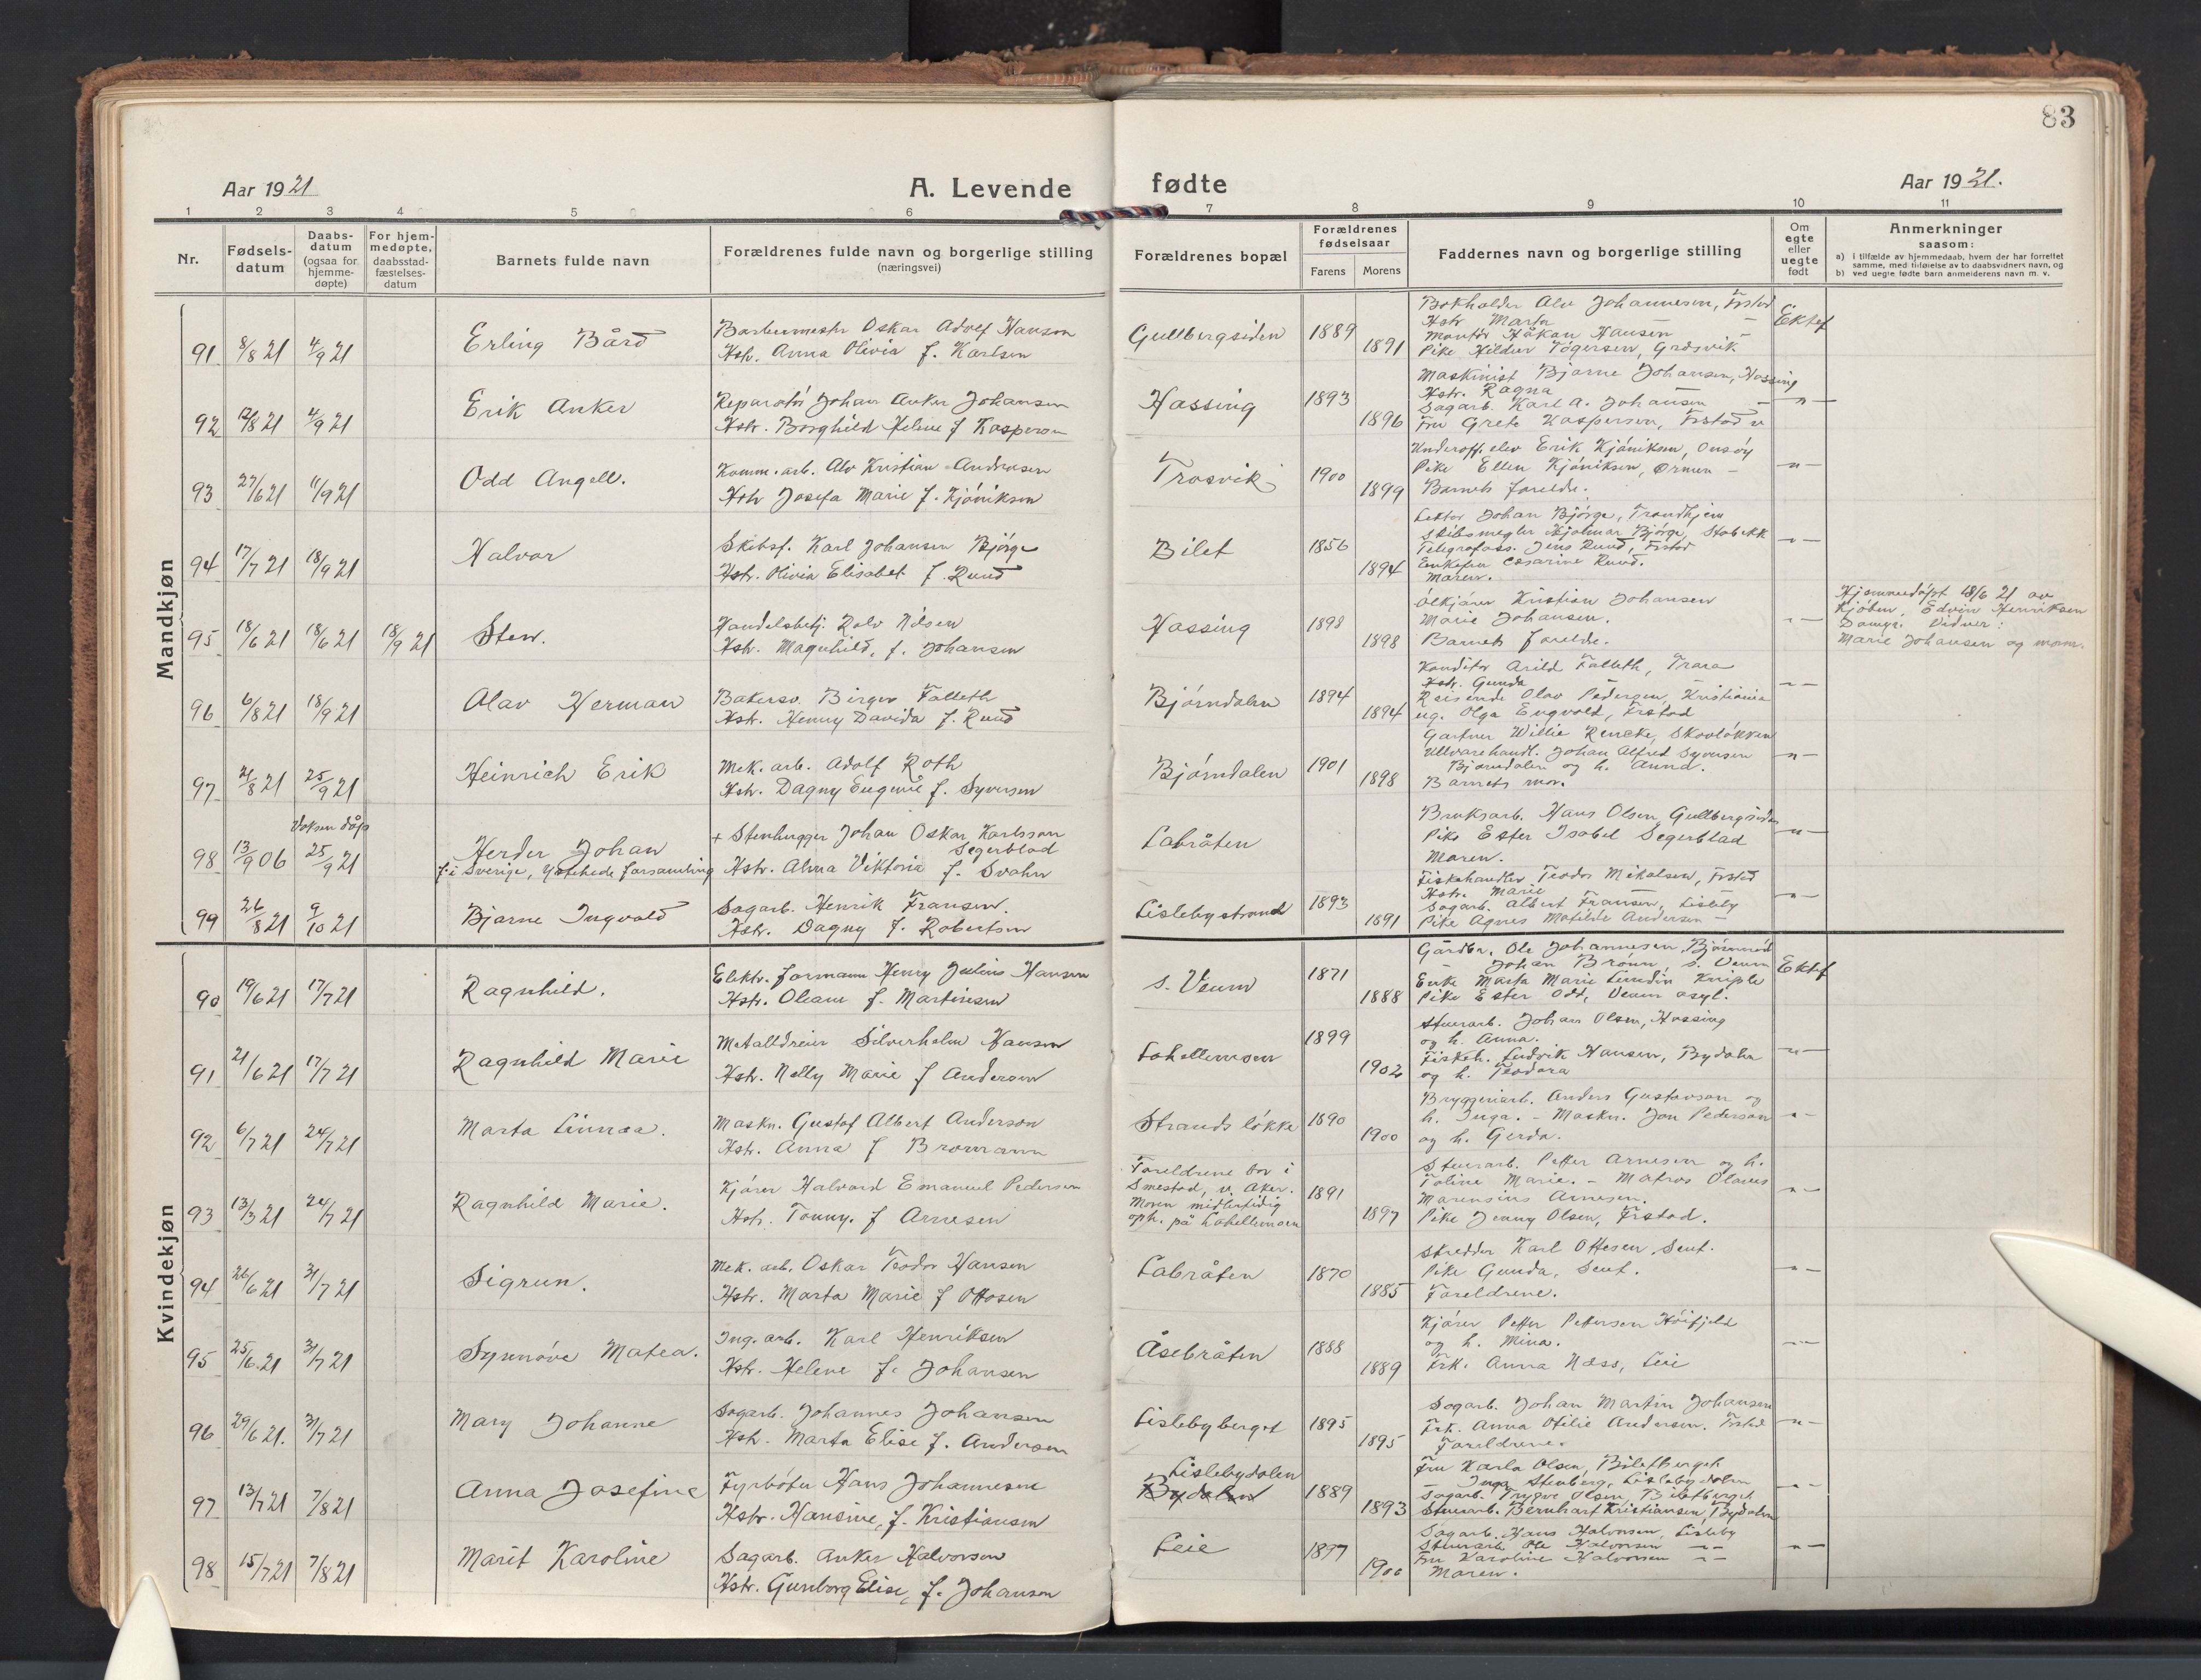 83
Aar 1921
A. Levende
fødte
Aar 1921.
1 2 3 4 5 6 7 8 9 10 11
Nr.
Fødsels-
datum
Daabs-
datum
(ogsaa for
hjemme-
døpte)
For hjem-
medøpte,
daabsstad-
fæstelses-
datum
Barnets fulde navn
Forældrenes fulde navn og borgerlige stilling
(næringsvei)
Forældrenes bopæl
Forældrenes
fødselsaar
Farens Morens
Faddernes navn og borgerlige stilling
Om
egte
eller
uegte
født
Anmerkninger
saasom:
a) i tilfælde av hjemmedaab, hvem der har forrettet
samme, med tilføielse av to daabsvidners navn, og
b) ved uegte fødte barn anmelderens navn m. v.
Mandkjøn
91 8/8 21 4/9 21
Erling Bård
Barbermester Oskar Adolf Hansen
Hstr. Anna Olivia f. Karlsen
Gullbergsiden
1889
1891
Bokholder Alv Johannesen, Frstad
Hstr Marta —
Montør Håkon Hansen —
Pike Hildur Tögersen, Gresvik
Ektef
92 12/8 21 4/9 21
Erik Anker
Reparatör Johan Anker Johansen
Hstr. Borghild Helene f Kaspersen
Hassing
1893
1896
Maskinist Bjarne Johansen, Hassing
Hstr. Ragna —
Sagarb. Karl A. Johansen —
Fru Grete Kaspersen, Frstad v
—"—
93 27/6 21 11/9 21
Odd Angell.
Komm. arb. Alv Kristian Andreasen
Hstr Josefa Marie f. Kjöniksen
Trosvik
1900
1899
Underoff. elev Erik Kjöniksen, Onsöy
Pike Ellen Kjöniksen, Ørmen —
Barnets foreldre.
—"—
94 17/7 21 18/9 21
Halvor
Skibsf. Karl Johansen Bjørge
Hstr. Olivia Elisabet f. Ruud
Bilet
1856
1894
Lektor Johan Bjørge, Trondhjem
Skibsmegler Hjalmar Bjørge, Stabekk
Telegrafass. Jens Ruud, Frstad
Enkefru Cesarine Ruud.
Moren.
—"—
95 18/6 21 18/6 21 18/9 21
Sten.
Handelsbetj. Rolv Nilsen
Hstr. Magnhild, f. Johansen
Hassing
1898
1898
Ølkjører Kristian Johansen
Marie Johansen.
Barnets foreldre.
—"—
Hjemmedøpt 18/6 21 av
Kjøbm. Edvin Henriksen
Vidner:
Marie Johansen og moren.
96 6/8 21 18/9 21
Olav Herman
Bakersv. Birger Talleth
Hstr. Henny Davida f. Ruud
Bjørndalen
1894
1894
Konditor Arild Talleth, Trara
Hstr. Gunda —
Reisende Olav Pedersen, Kristiania
ug. Olga Engvold, Frstad
—"—
97 21/8 21 25/9 21
Heinrich Erik
Mek. arb. Adolf Roth
Hstr. Dagny Eugenie f. Syversen
Bjørndalen
1901
1898
Gartner Willie Rencke, Skovløkken
Ullvarehandl. Johan Alfred Syversen
Bjørndalen og h. Anna.
Barnets mor.
—"—
Voksen dåp
98 13/9 06 25/9 21
Herder Johan
f. i Sverige, forsamling
+ Stenhugger Johan Oskar Karlsson
Segerblad
Hstr. Alma Viktoria f. Svahn
Labråten
Bruksarb. Hans Olsen Gullbergsiden
Pike Ester Isabel Segerblad
Moren.
—"—
99 26/8 21 9/10 21
Bjarne Ingvald
Sagarb. Henrik Fransen.
Hstr. Dagny f. Robertsen
Lislebystrand
1893
1891
Fiskehandler Teodor Mikalsen, Frstad
Hstr. Marie —
Sagarb. Albert Fransen, Lisleby
Pike Agnes Matilde Andersen —
—"—
Kvindekjøn
90 19/6 21 17/7 21
Ragnhild.
Elektr. formann Henry Julius Hansen
Hstr. Oleane f. Martinsen
s. Veum
1871
1888
Gårdbr. Ole Johannesen,
— Johan Brønn s. Veum
Enke Marta Marie Lundin Kniple
Pike Ester Odd, Veum asyl.
Ektef
91 21/6 21 17/7 21
Ragnhild Marie
Metalldreier Silverholm Hansen
Hstr. Nelly Marie f Andersen
Lahellemoen
1899
1902
Stuerarb. Johan Olsen, Hassing
og h. Anna.
Fiskeh. Ludvik Hansen, Bydalen
og h. Teodora
—"—
92 6/7 21 24/7 21
Marta Linnea.
Maskn. Gustaf Albert Anderson
Hstr. Anna f Bromann
Strands løkke
1890
1900
Bryggeriarb. Anders Gustavson og
h. Inga. – Maskn. Jon Pederson
og h. Gerda.
—"—
93 13/3 21 24/7 21
Ragnhild Marie.
Kjører Halvard Emanuel Pedersen
Hstr. Tonny. f Arnesen
Foreldrene bor i
Smestad, v. Aker.
Moren midlertidig
oph. på Lahellemoen
1891
1897
Stuerarb. Petter Arnesen og h.
Toline Marie. – Matros Olaves
Marensius Arnesen.
Pike Jenny Olsen, Frstad.
—"—
94 26/6 21 31/7 21
Sigrun.
Mek. arb. Oskar Teodor Hansen
Hstr. Marta Marie f Ottosen
Labråten
1870
1885
Skredder Karl Ottesen Seut.
Pike Gunda, Seut.
Foreldrene.
—"—
95 25/6 21 31/7 21
Synnöve Matea.
Ing. arb. Karl Henriksen
Hstr. Helene f. Johansen
Åsebråten
1888
1889
Kjører Petter Pettersen Höifjeld
og h. Mina.
Frk. Anna Næss, Leie
—"—
96 29/6 21. 31/7 21
Mary Johanne
Sagarb. Johannes Johansen
Hstr. Marta Elise f. Andersen
Lislebyberget
1895
1895
Sagarb. Johan Martin Johansen
Frk. Anna Otilie Andersen. Frstad
Foreldrene.
—"—
97 13/7 21 7/8 21
Anna Josefine
Fyrbøter Hans Johannesen
Hstr. Hansine, f. Kristiansen
Lislebydalen
Bydalen
1889
1893
Fru Karla Olsen, Biletberget
— Inga Stenberg, Lislebydalen
Sagarb. Trygve Olsen, Biletberget
Stuerarb. Bernhart Kristiansen, Bydalen
—"—
98 15/7 21 7/8 21
Marit Karoline
Sagarb. Anker Halvorsen
Hstr. Gunborg Elise, f. Johansen
Leie
1897
1900
Sagarb. Hans Halvorsen, Lisleby
Stuerarb. Ole Halvorsen —"—
Fru Karoline Halvorsen —"—
Moren.
—"—